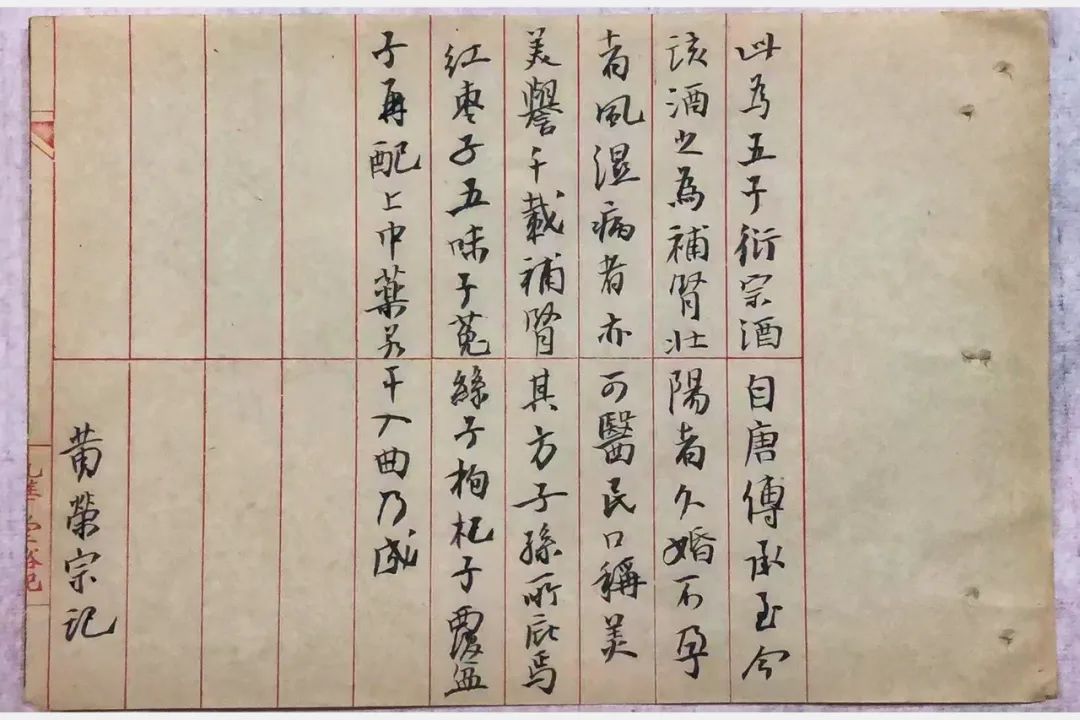 此為五子衍宗酒自唐傳承至今
該酒之為補腎壯陽者久婚不孕
者風濕病者亦可醫民口稱美
美譽千載補腎其方子孫所庇焉
紅棗子五味子菟絲子枸杞子覆盆
子再配上中藥若干入曲乃成
黃榮宗記